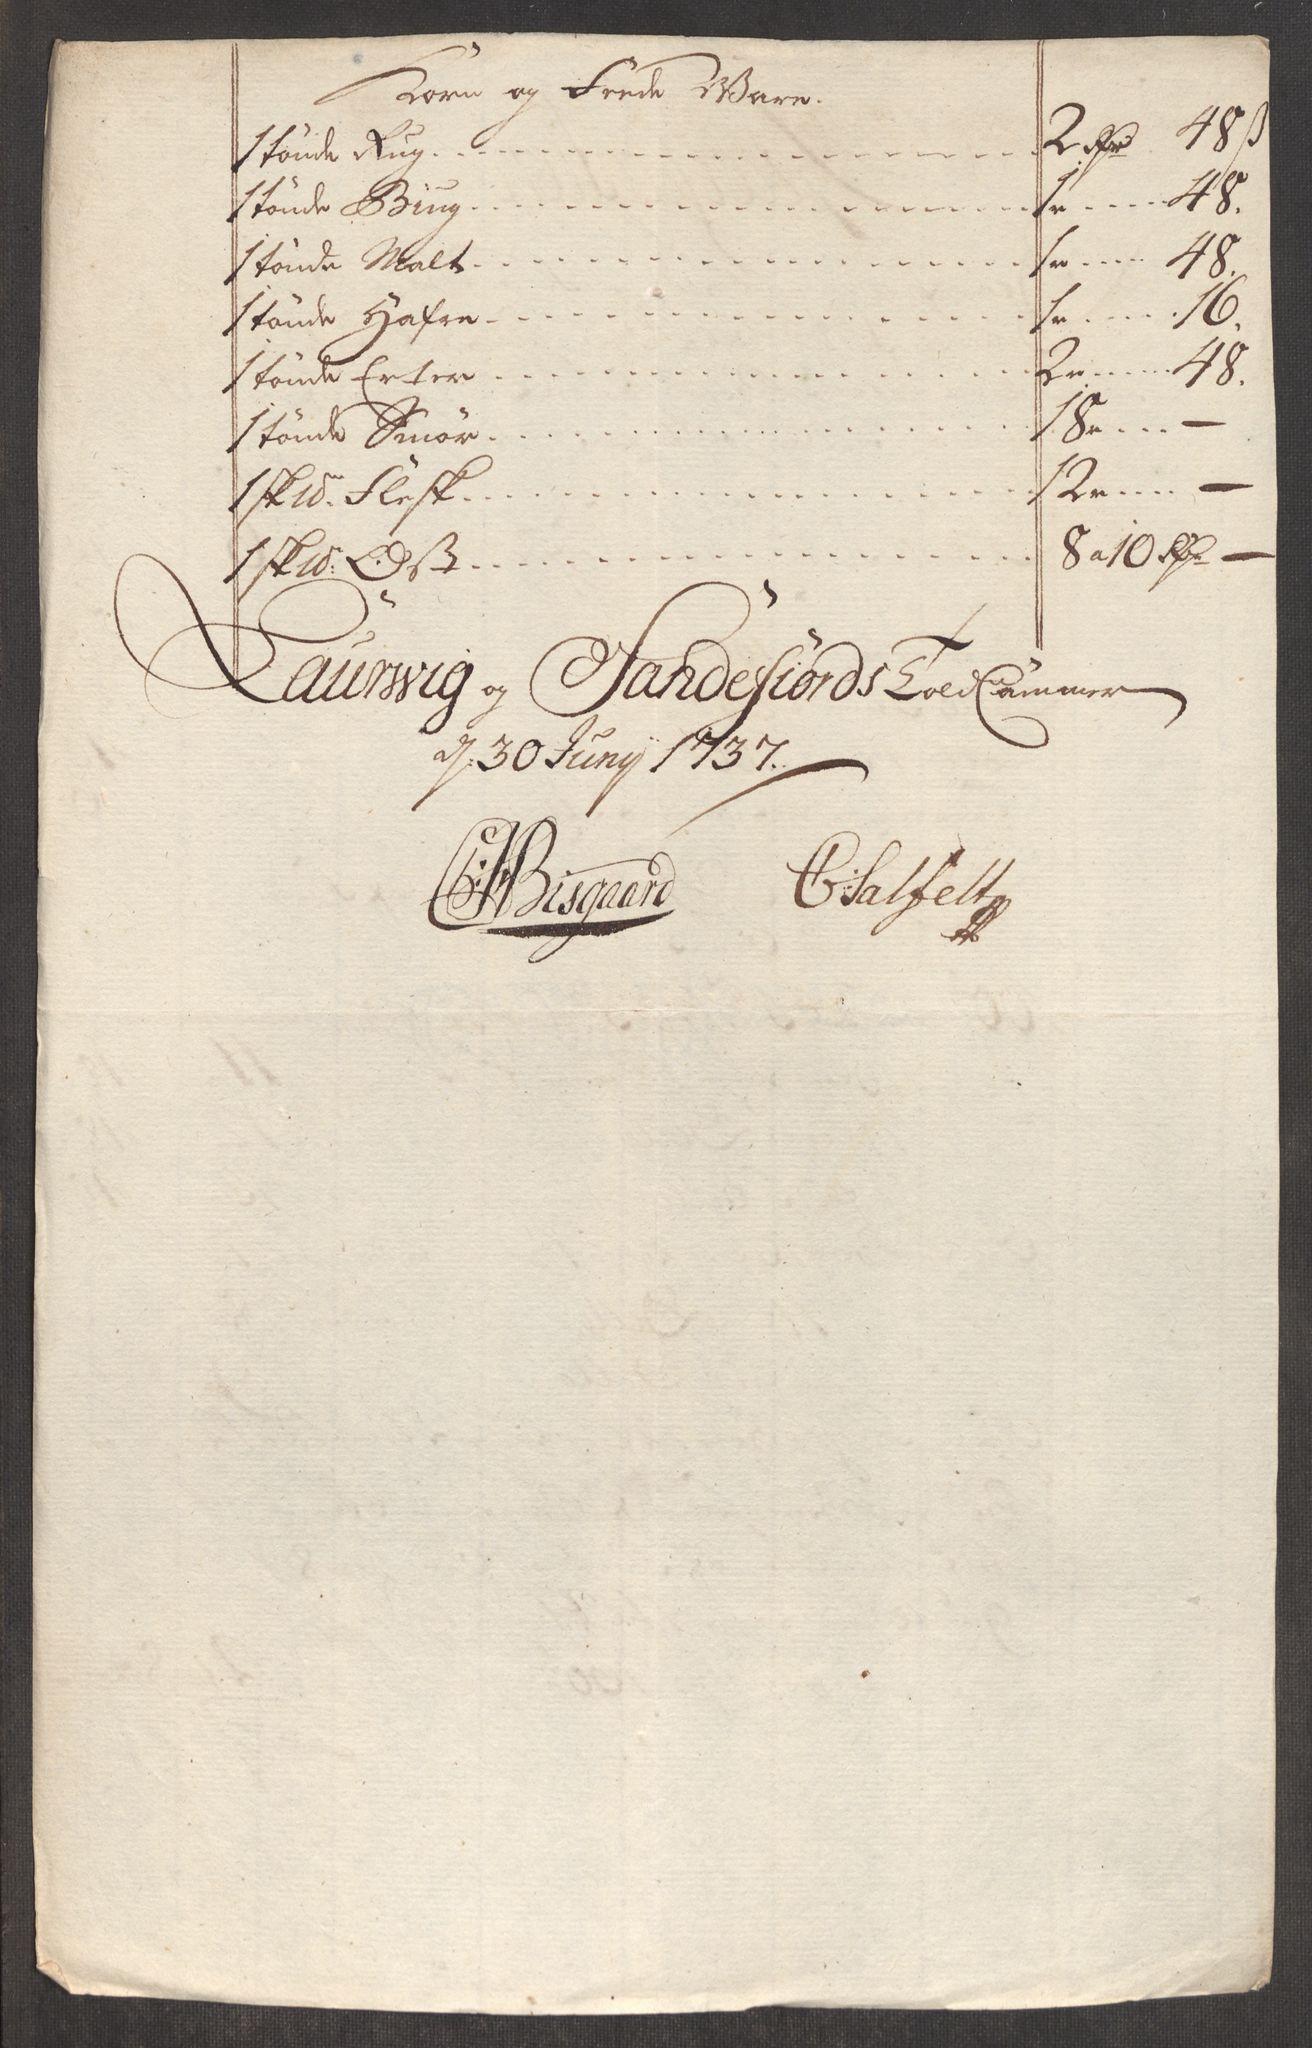 Korn og Fede Ware.
1 tönde Rug 2 Rdr 48 ß
1 tönde Biug 1 r 48.
1 tönde Malt 1 r 48.
1 tönde Hafre 1 r 16.
1 tönde Erter 2 r 48.
1 tönde Smör 18 r —
1 sk℔. Flesk 12 r —
1 sk℔. Ost 8 a 10 Rdr —
Laurwig og Sandefiords Told Cammer
d. 30 Juny 1737.
Bisgaard C Salfelt